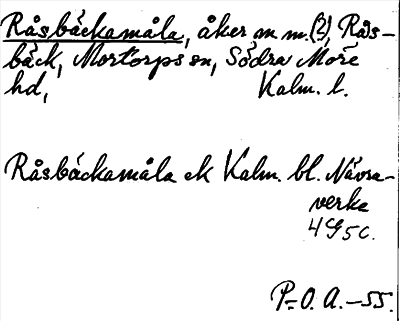 Råsbäckamåla, åker m m.(?), Rås-
bäck, Mortorps sn, Södra Möre
hd, Kalm. l.
Råsbäckamåla ek Kalm. bl. Návra-
verke
4G5c.
P-O. A.-55.